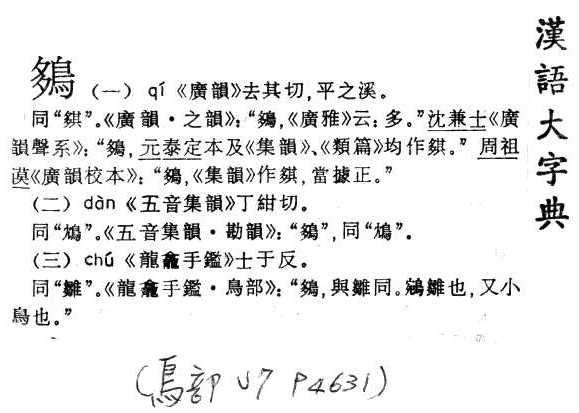 漢語大字典
(一) qí《廣韻》去其切,平之溪。
同“ ”。《廣韻·之韻》:“ ,《廣雅》云:多。”沈兼士《廣
韻聲系》:“ ,元泰定本及《集韻》、《類篇》均作 。”周祖
謨《廣韻校本》:“ ,《集韻》作 ,當據正。”
(二) dàn《五音集韻》丁紺切。
同“ ”。《五音集韻·勘韻》:“ ”,同“ ”。
(三) chú《龍龕手鑑》士于反。
同“雛”。《龍龕手鑑·鳥部》:“ ,與雛同。鵷雛也,又小
鳥也。”
(鳥部 V7 P4631)